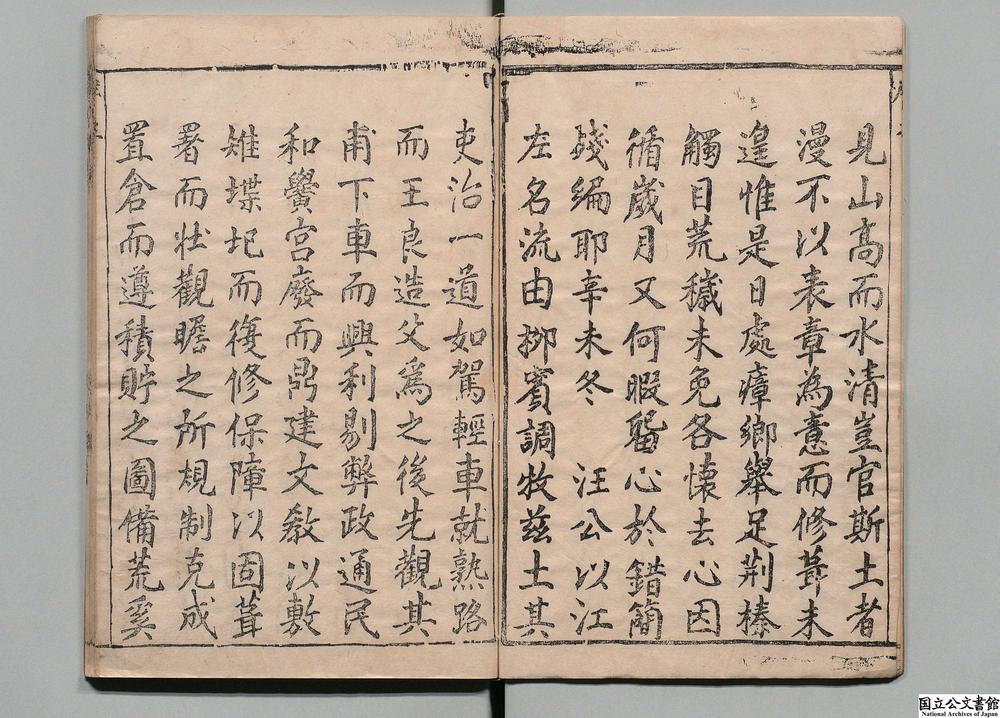 見山高而水清豈官斯土者
漫不以表章為意而修葺未
遑惟是日處瘴鄉舉足荊榛
觸目荒穢未免各懷去心因
循歲月又何暇留心於錯簡
殘編耶辛未冬 汪公以江
左名流由柳賓調牧茲土其
吏治一道如駕輕車就熟路
而王良造父爲之後先觀其
甫下車而興利剔弊政通民
和黌宮廢而鼎建文教以敷
雉堞圮而復修保障以固葺
署而壯觀瞻之所規制克成
置倉而遵積貯之圖備荒奚
国立公文書館
National Archives of Japan